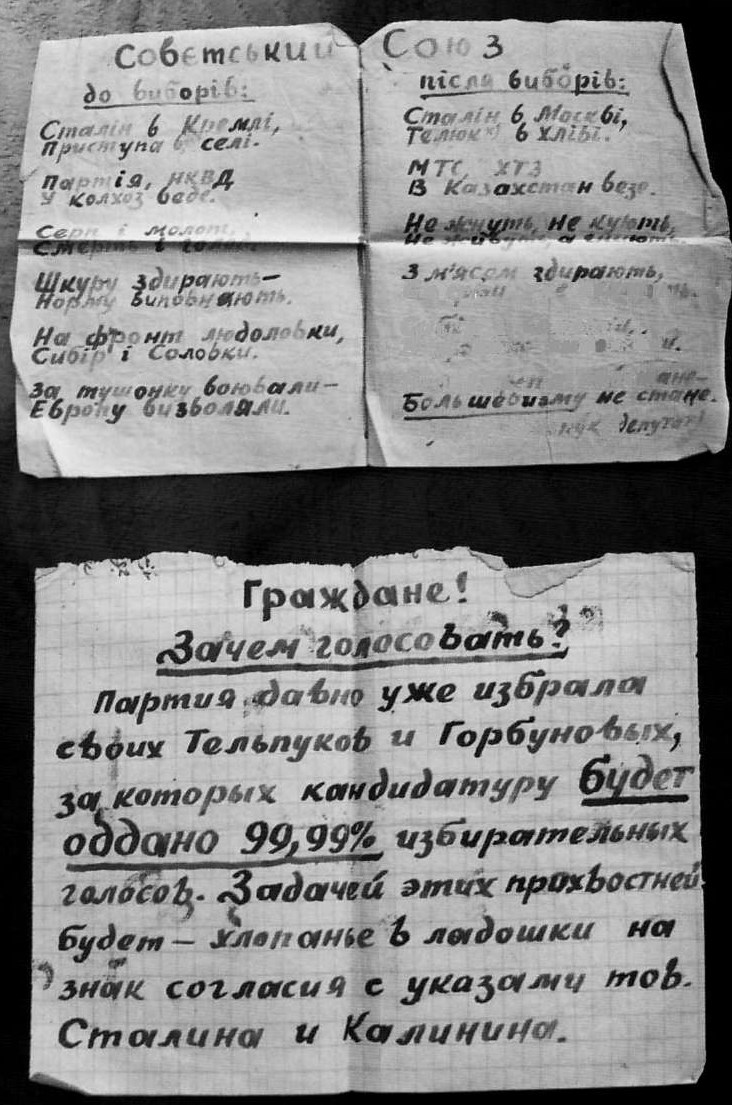 Совєтський Союз
до виборів:
Сталін в Кремлі,
Приступа в селі.
Партія, НКВД
У колхоз веде.
Серп і молот,
Смерть і голод.
Шкуру здирають—
Норму виповняють.
На фронт людоловки,
Сибір і Соловки.
За тушонку воювали—
Европу визволяли.
після виборів:
Сталін в Москві,
в хліві.
МТС, ХТЗ
В Казахстан везе.
Не жнуть, не кують,
Не живуть, а
З м'ясом здирають,
Большевизму не стане.
депутат
Граждане!
Зачем голосовать?
Партия давно уже избрала
своих Тельпуков и Горбуновых,
за которых кандидатуру будет
оддано 99,99% избирательных
голосов. Задачей этих прихвостней
будет — хлопанье в ладошки на
знак согласия с указами тов.
Сталина и Калинина.